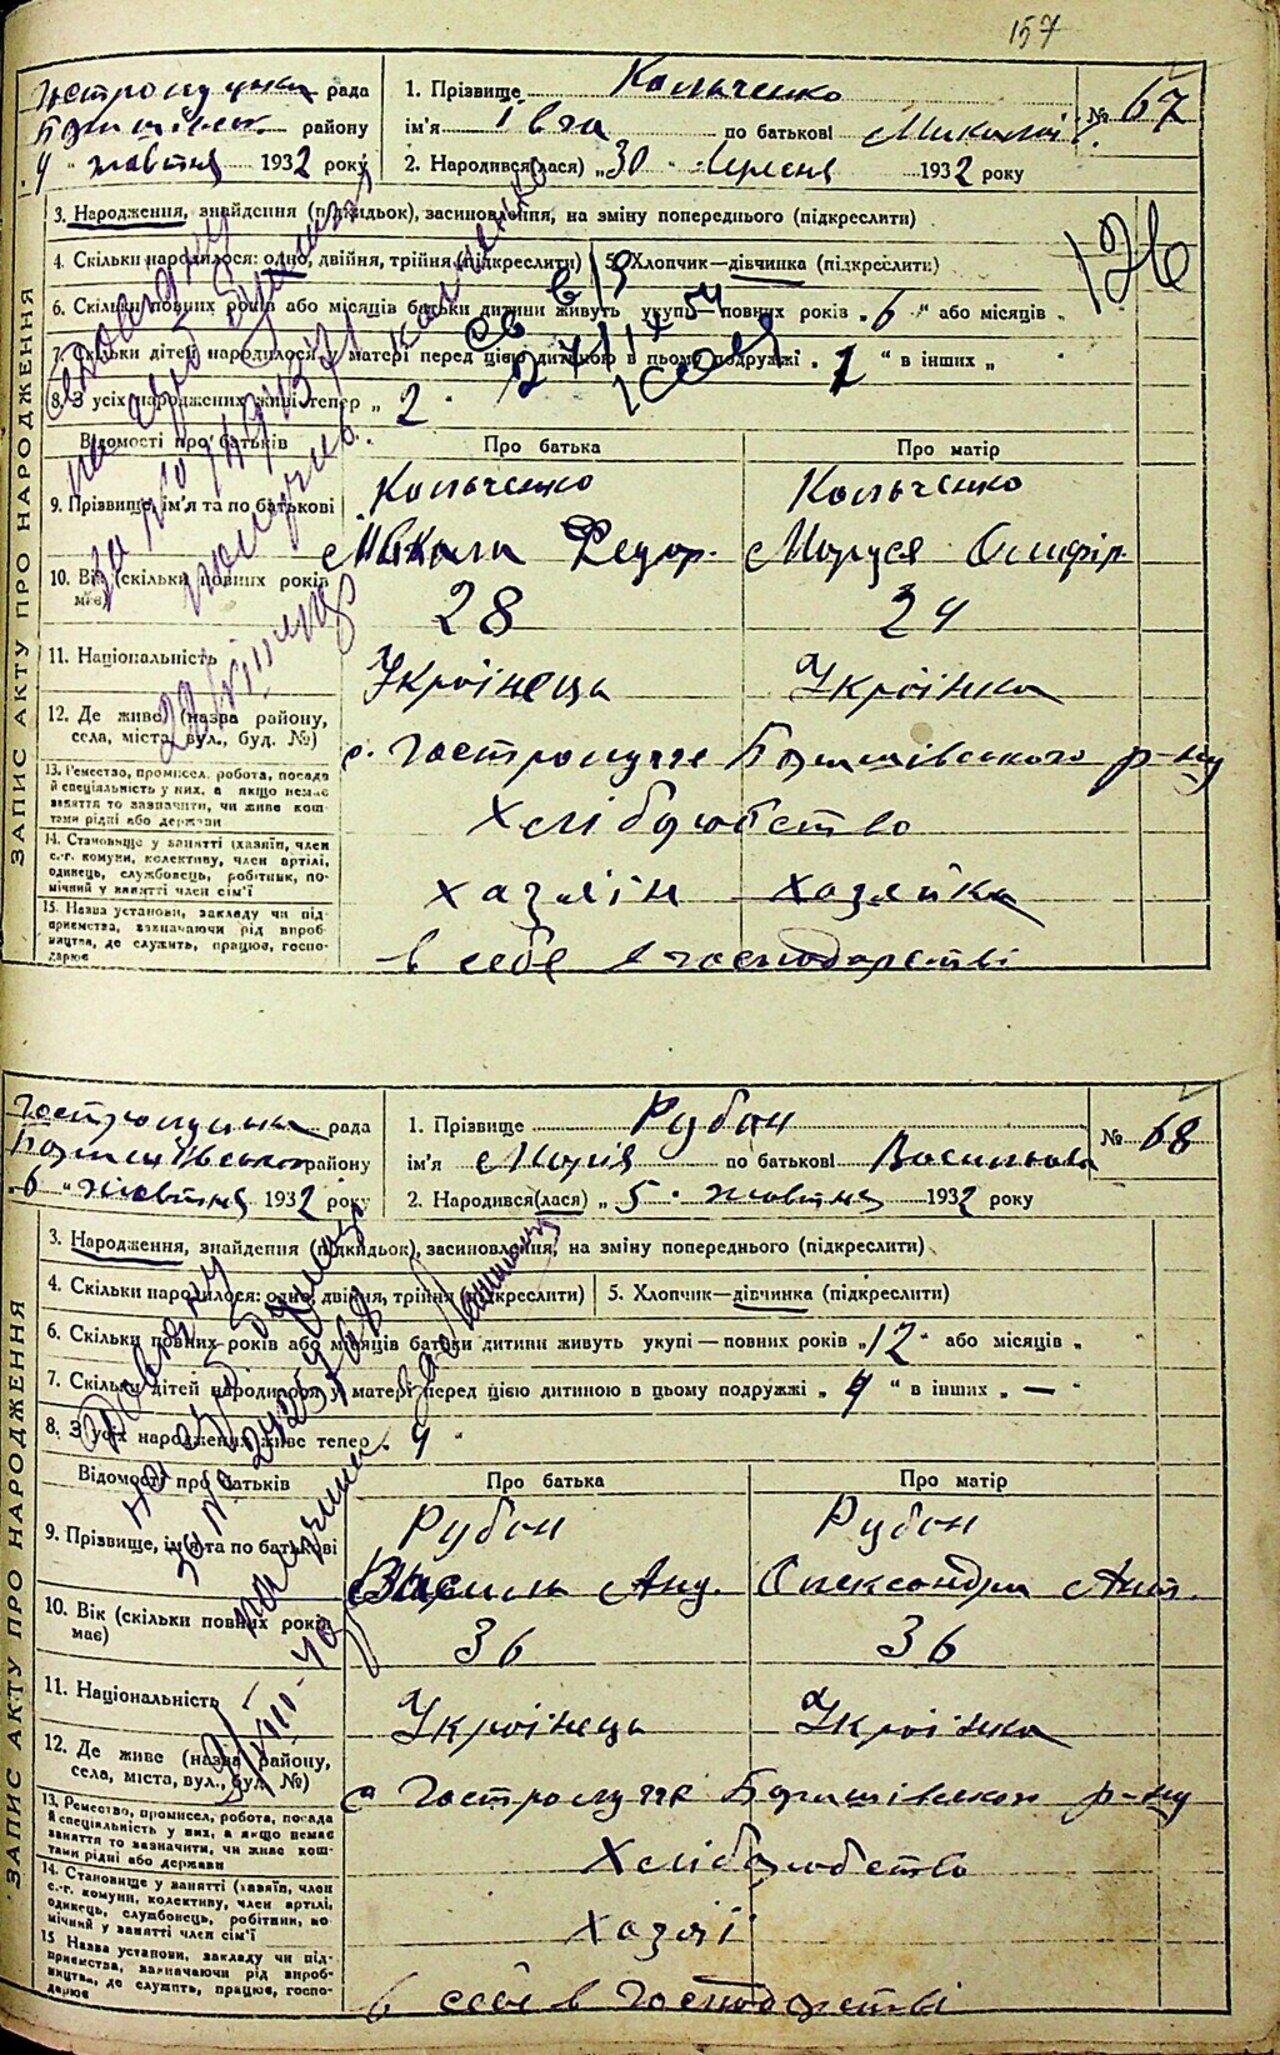 157
Гостролуцька рада
Баришівськ. району
4 " жовтня 1932 року
1. Прізвище Кольченко
ім'я Івга по батькові Миколаї
№ 67
2. Народився(лася) „30 " вересня 1932 року
ЗАПИС АКТУ ПРО НАРОДЖЕННЯ
3. Народження, знайдення (підкидьок), засиновлення, на зміну попереднього (підкреслити)
126
4. Скільки народилося: одно, двійня, трійня (підкреслити)
5. Хлопчик—дівчинка (підкреслити)
6. Скільки повних років або місяців батьки дитини живуть укупі—повних років „6 " або місяців „
7. Скільки дітей народилося у матері перед цією дитиною в цьому подружжі „ 1 " в інших „
8. З усіх народжених живі тепер „ 2 "
Відомості про батьків Про батька Про матір
9. Прізвище, ім'я та по батькові
Кольченко Кольченко
Микола Федор. Маруся Олифір.
10. Вік (скільки повних років має) 28 24
11. Національність Українець Українка
12. Де живе (назва району, села, міста, вул., буд. №)
с. Гостролуччє Баришівського р-ну
13. Ремество, промисел, робота, посада й спеціяльність у них, а якщо немає заняття то зазначити, чи живе коштами рідні або держави
Хліборобство
14. Становище у занятті (хазяїн, член с.-г. комуни, колективу, член артілі, одинець, службовець, робітник, помічний у занятті член сім'ї
хазяїн хазяйка
15. Назва установи, закладу чи підприємства, зазначаючи рід виробництва, де служить, працює, господарює
в себе в господарстві
Гостролуцька рада
Баришівського району
„6 " жовтня 1932 року
1. Прізвище Рубан
ім'я Марія по батькові Васильова
№ 68
2. Народився(лася) „ 5 " жовтня 1932 року
ЗАПИС АКТУ ПРО НАРОДЖЕННЯ
3. Народження, знайдення (підкидьок), засиновлення, на зміну попереднього (підкреслити)
4. Скільки народилося: одно, двійня, трійня (підкреслити)
5. Хлопчик—дівчинка (підкреслити)
6. Скільки повних років або місяців батьки дитини живуть укупі—повних років „12 " або місяців „ "
7. Скільки дітей народилося у матері перед цією дитиною в цьому подружжі „ 4 " в інших „ — "
8. З усіх народжених живе тепер „ 4 "
Відомості про батьків Про батька Про матір
9. Прізвище, ім'я та по батькові
Рубан Рубан
Василь Анд. Олександра Ант.
10. Вік (скільки повних років має) 36 36
11. Національність Українець Українка
12. Де живе (назва району, села, міста, вул., буд. №)
с. Гостролуччє Баришівського р-ну
13. Ремество, промисел, робота, посада й спеціяльність у них, а якщо немає заняття то зазначити, чи живе коштами рідні або держави
Хліборобство
14. Становище у занятті (хазяїн, член с.-г. комуни, колективу, член артілі, одинець, службовець, робітник, помічний у занятті член сім'ї
хазяї
15 Назва установи, закладу чи підприємства, зазначаючи рід виробництва, де служить, працює, господарює
в себе в господарстві